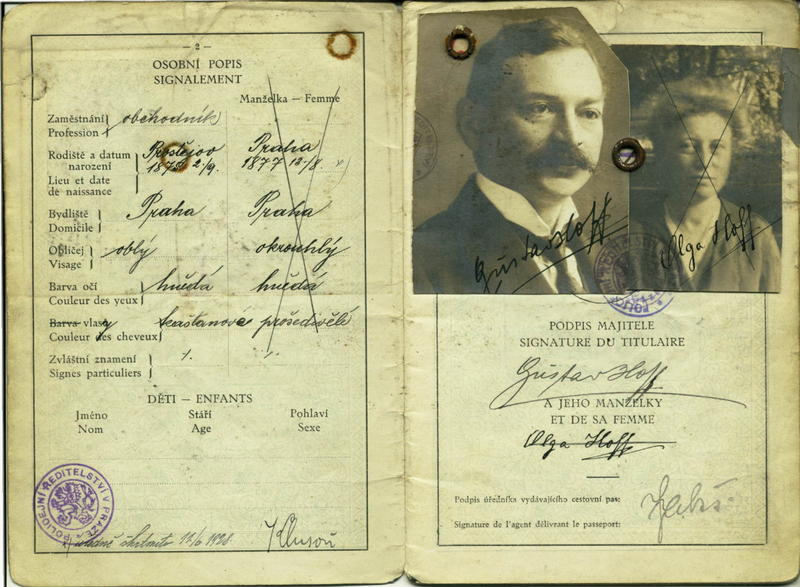 — 2 —
OSOBNÍ POPIS
SIGNALEMENT
Manželka — Femme
Zaměstnání
Profession
obchodník
Rodiště a datum
narození
Lieu et date
de naissance
Prostějov
2/9.
Praha
1877 12/8
Bydliště
Domicile
Praha
Praha
Obličej
Visage
oblý
okrouhlý
Barva očí
Couleur des yeux
hnědá
hnědá
Barva vlasy
Couleur des cheveux
kaštanové
prošedivělé
Zvláštní znamení
Signes particuliers
DĚTI — ENFANTS
Jméno
Nom
Stáří
Age
Pohlaví
Sexe
POLICEJNÍ ŘEDITELSTVÍ V PRAZE
12/6 1928.
Gustav Hoff
Olga Hoff
PODPIS MAJITELE
SIGNATURE DU TITULAIRE
Gustav Hoff
A JEHO MANŽELKY
ET DE SA FEMME
Olga Hoff
Podpis úředníka vydávajícího cestovní pas:
Signature de l'agent délivrant le passeport: